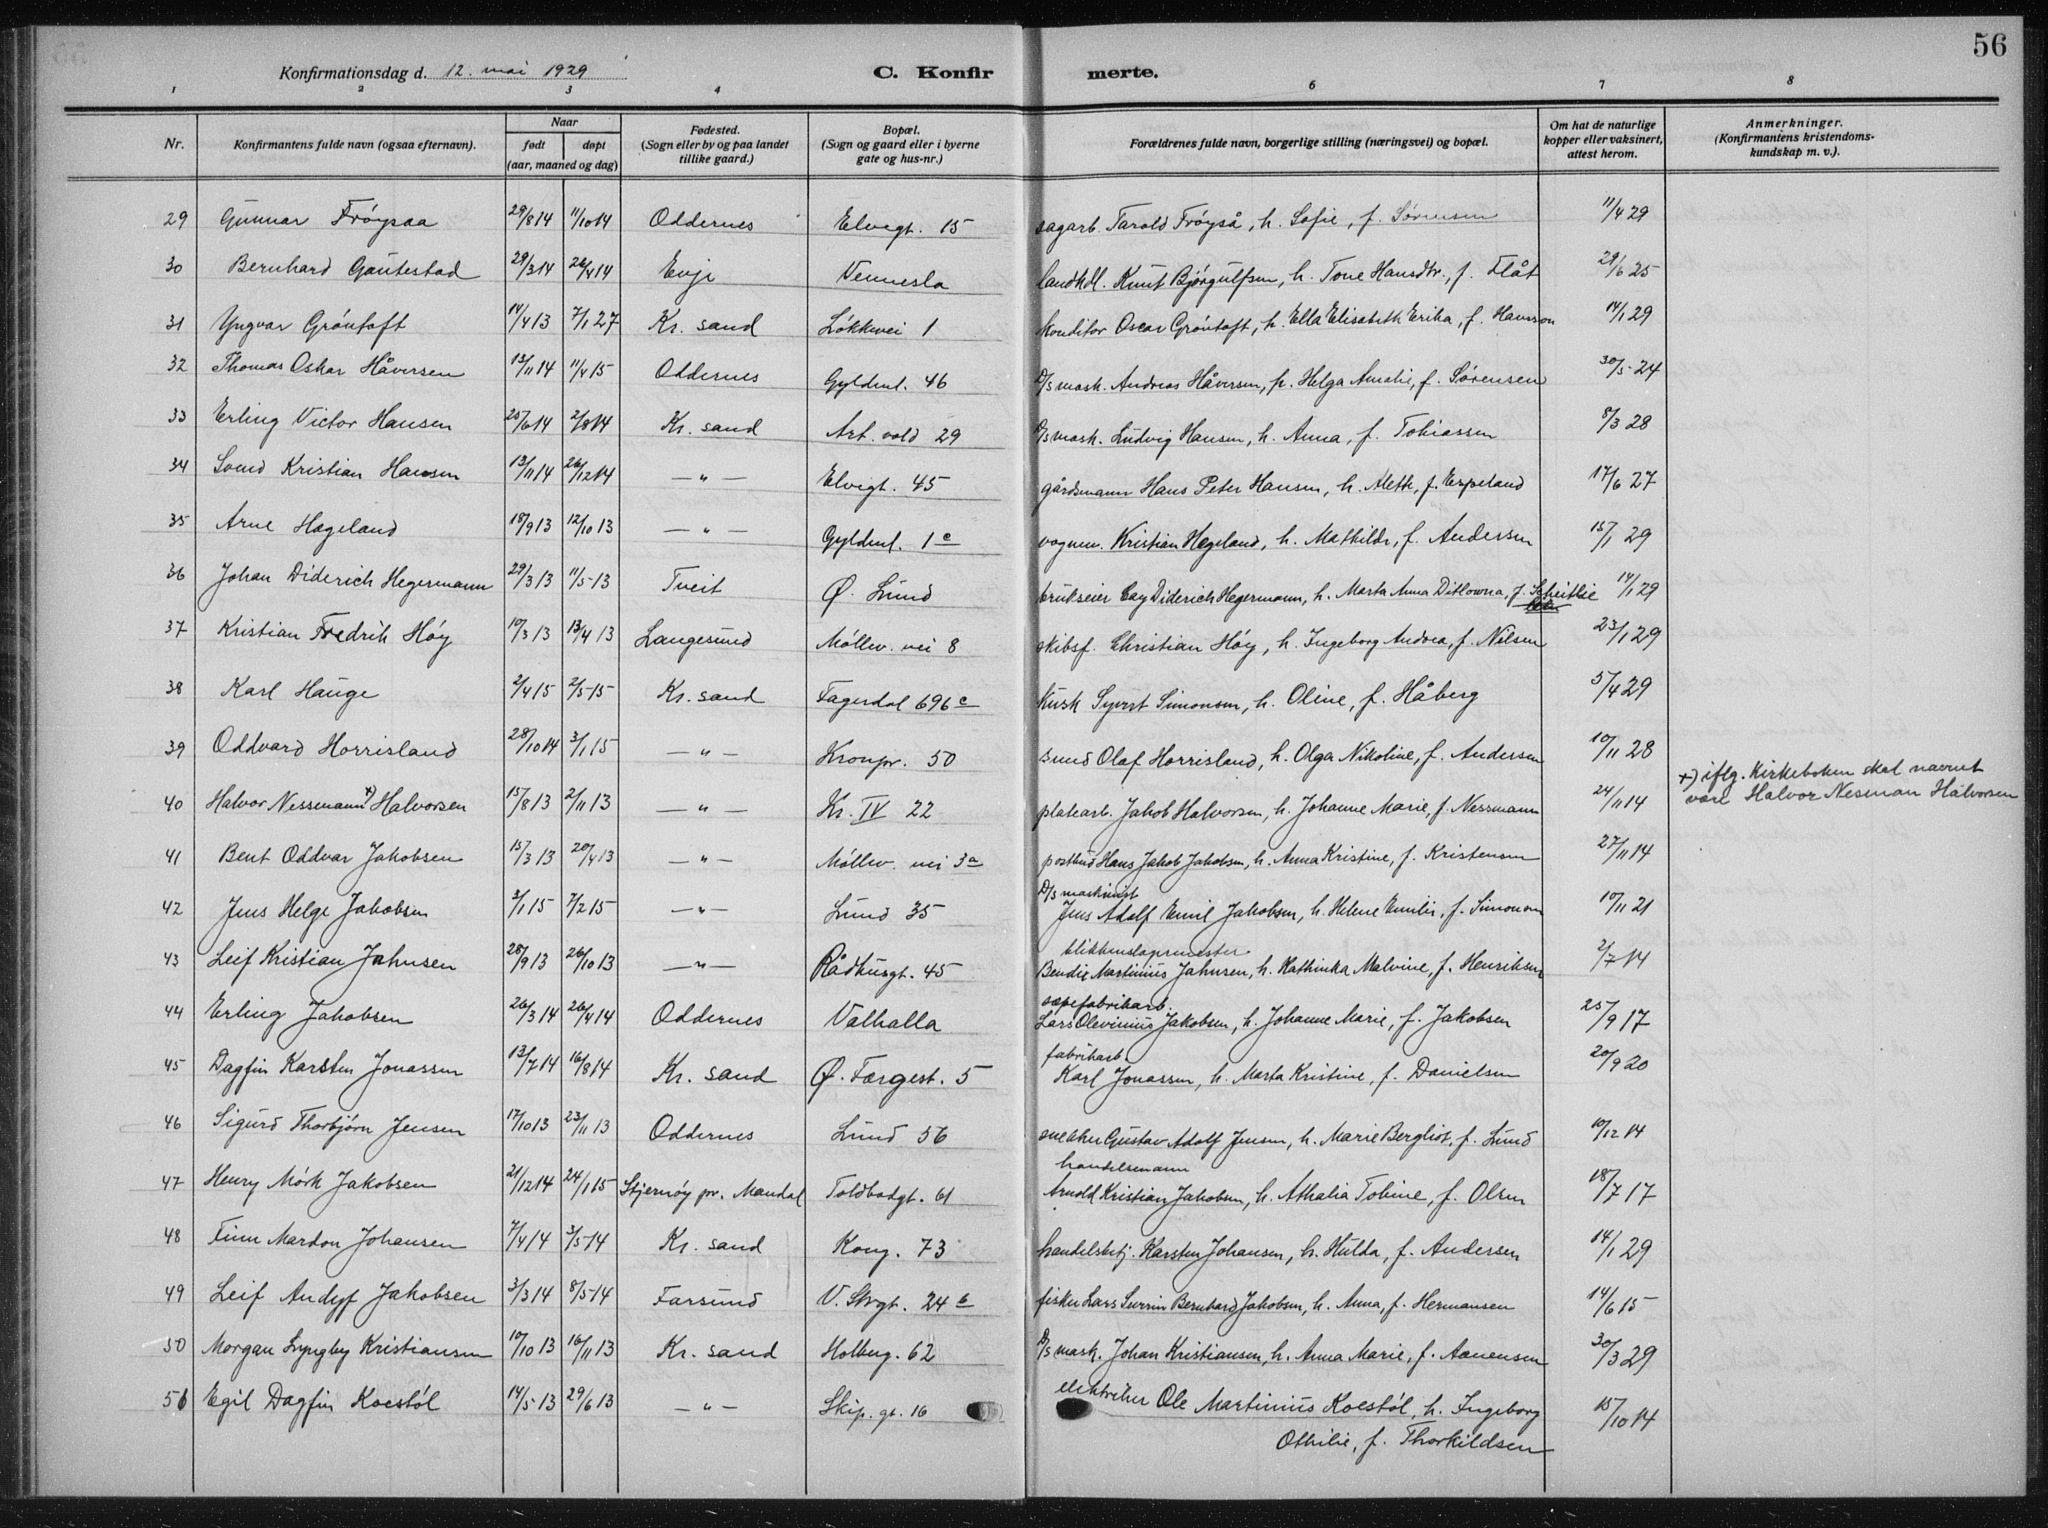 56
Konfirmationsdag d. 12. mai 1929 C. Konfirmerte.
1 2 3 4 6 7 8
Nr. Konfirmantens fulde navn (ogsaa efternavn). Naar født døpt (aar, maaned og dag) Fødested. (Sogn eller by og paa landet tillike gaard.) Bopæl. (Sogn og gaard eller i byerne gate og hus-nr.) Forældrenes fulde navn, borgerlige stilling (næringsvei) og bopæl. Om hat de naturlige kopper eller vaksinert, attest herom. Anmerkninger. (Konfirmantens kristendoms-kundskap m. v.).
29 Gunnar Frøysaa 29/8 14 11/10 14 Oddernes Elvegt. 15 sagarb. Tarald Frøyså, h. Sofie, f. Sørensen 11/4 29
30 Bernhard Gautestad 29/3 14 26/4 14 Evje Vennesla landhdl. Knut Bjørgulfsen, h. Tone Hansdtr., f. Flåt 29/6 25
31 Yngvar Grøntoft 14/4 13 7/1 27 Kr. sand Løkkevei 1 konditor Oscar Grøntoft, h. Ella Elisabeth Erika, f. Hansson 14/1 29
32 Thomas Oskar Håversen 13/11 14 11/4 15 Oddernes Gyldenl. 46 D/s mask. Andreas Håversen, h. Helga Amalie, f. Sørensen 30/5 24
33 Erling Victor Hansen 25/6 14 2/8 14 Kr. sand Art. vold 29 D/s mask. Ludvig Hansen, h. Anna, f. Tobiassen 8/3 28
34 Svend Kristian Hansen 13/11 14 26/12 14 — " — Elvegt. 45 gårdsmann Hans Peter Hansen, h. Aleth, f. Espeland 17/6 27
35 Arne Hægeland 18/9 13 12/10 13 — " — Gyldenl. 1 c vognm. Kristian Hægeland, h. Mathilde, f. Andersen 15/1 29
36 Johan Diderich Hegermann 29/3 13 11/5 13 Tveit Ø. Lund brukseier Cay Diderich Hegermann, h. Marta Anna Ditlowna, f. Scheitlie 14/1 29
37 Kristian Fredrik Høy 10/3 13 13/4 13 Langesund Møllev. vei 8 skibsf. Christian Høy, h. Ingeborg Andrea, f. Nilsen 23/1 29
38 Karl Hauge 2/4 15 2/5 15 Kr. sand Fagerdal 696 c Kusk Syvert Simonsen, h. Oline, f. Håberg 5/4 29
39 Oddvard Horrisland 28/10 14 3/1 15 — " — Kronpr. 50 smed Olaf Horrisland, h. Olga Nikoline, f. Andersen 10/11 28
40 Halvor Nessemann +) Halvorsen 15/8 13 2/11 13 — " — Kr. IV 22 platearb. Jakob Halvorsen, h. Johanne Marie, f. Nessmann 24/11 14 +) iflg. Kirkeboken skal navnet
være Halvor Nesman Halvorsen
41 Bent Oddvar Jakobsen 15/3 13 20/4 13 — " — Møllev. vei 3 a postbud Hans Jakob Jakobsen, h. Anna Kristine, f. Kristensen 27/11 14
D/s maskinist
42 Jens Helge Jakobsen 3/1 15 7/2 15 — " — Lund 35 Jens Adolf Emil Jakobsen, h. Helene Emilie, f. Simonsen 10/11 21
blikkenslagermester
43 Leif Kristian Jahnsen 28/9 13 26/10 13 — " — Rådhusgt. 45 Bendix Martinius Jahnsen, h. Kathinka Malvine, f. Henriksen 2/7 14
sæpefabrikarb.
44 Erling Jakobsen 26/3 14 26/4 14 Oddernes Valhalla Lars Olevinius Jakobsen, h. Johanne Marie, f. Jakobsen 25/9 17
fabrikarb.
45 Dagfin Karsten Jonassen 13/7 14 16/8 14 Kr. sand Ø. Færgest. 5 Karl Jonassen, h. Marta Kristine, f. Danielsen 20/9 20
46 Sigurd Thorbjørn Jensen 17/10 13 23/11 13 Oddernes Lund 56 snekker Gustav Adolf Jensen, h. Marie Bergliot, f. Lund 10/12 14
handelsmann
47 Henry Mørk Jakobsen 21/12 14 24/1 15 Skjernøy pr. Mandal Toldbodgt. 61 Arnold Kristian Jakobsen, h. Athalia Tobine, f. Olsen 18/7 17
48 Finn Mardon Johansen 7/4 14 3/5 14 Kr. sand Kong. 73 handelsbetj. Karsten Johansen, h. Hulda, f. Andersen 14/1 29
49 Leif Andyf Jakobsen 3/3 14 8/5 14 Farsund V. Strgt. 24 b fisker Lars Severin Bernhard Jakobsen, h. Anna, f. Hermansen 14/6 15
50 Morgan Lyngby Kristiansen 10/10 13 16/11 13 Kr. sand Holberg. 62 D/s mask. Johan Kristiansen, h. Anna Marie, f. Aanensen 30/3 29
51 Egil Dagfin Koestøl 14/5 13 29/6 13 — " — Skip. gt. 16 elektriker Ole Martinius Koestøl, h. Ingeborg 15/10 14
Othilie, f. Thorkildsen